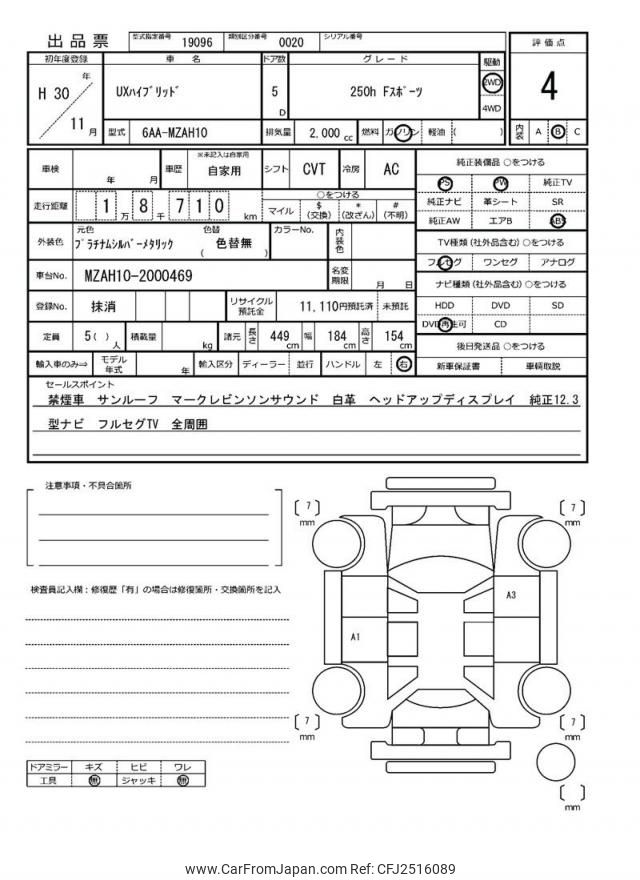 出品票 型式指定番号 19096 類別区分番号 0020 シリアル番号
初年度登録 車名 ドア数 グレード 駆動 評価点
H 30 年 11 月 UXハイブリッド 5 D 250h Fスポーツ 2WD 4WD 4
型式 6AA-MZAH10 排気量 2,000 cc 燃料 ガソリン 軽油 ( ) 内装 A B C
車検 年 月 車歴 ※未記入は自家用 自家用 シフト CVT 冷房 AC
走行距離 1 万 8 千 7 1 0 km ○をつける
マイル $ (交換) * (改ざん) # (不明)
外装色 元色 プラチナムシルバーメタリック 色替 ( 色替無 ) カラーNo. 内装色
車台No. MZAH10-2000469 名変期限 月 日
登録No. 抹消 リサイクル預託金 11,110円預託済 未預託
定員 5 ( ) 人 積載量 kg 諸元 長さ 449 cm 幅 184 cm 高さ 154 cm
輸入車のみ⇒ モデル年式 年 輸入区分 ディーラー 並行 ハンドル 左 右
純正装備品 ○をつける
PS PW 純正TV
純正ナビ 革シート SR
純正AW エアB ABS
TV種類 (社外品含む) ○をつける
フルセグ ワンセグ アナログ
ナビ種類 (社外品含む) ○をつける
HDD DVD SD
DVD再生可 CD
後日発送品 ○をつける
新車保証書 車輌取説
セールスポイント
禁煙車 サンルーフ マークレビンソンサウンド 白革 ヘッドアップディスプレイ 純正12.3
型ナビ フルセグTV 全周囲
注意事項・不具合箇所
検査員記入欄：修復歴「有」の場合は修復箇所・交換箇所を記入
ドアミラー キズ ヒビ ワレ
工具 無 ジャッキ 無
[ 7 ] mm
[ 7 ] mm
A3
A1
[ 7 ] mm
[ 7 ] mm
[ ] mm
www.CarFromJapan.com Ref: CFJ2516089